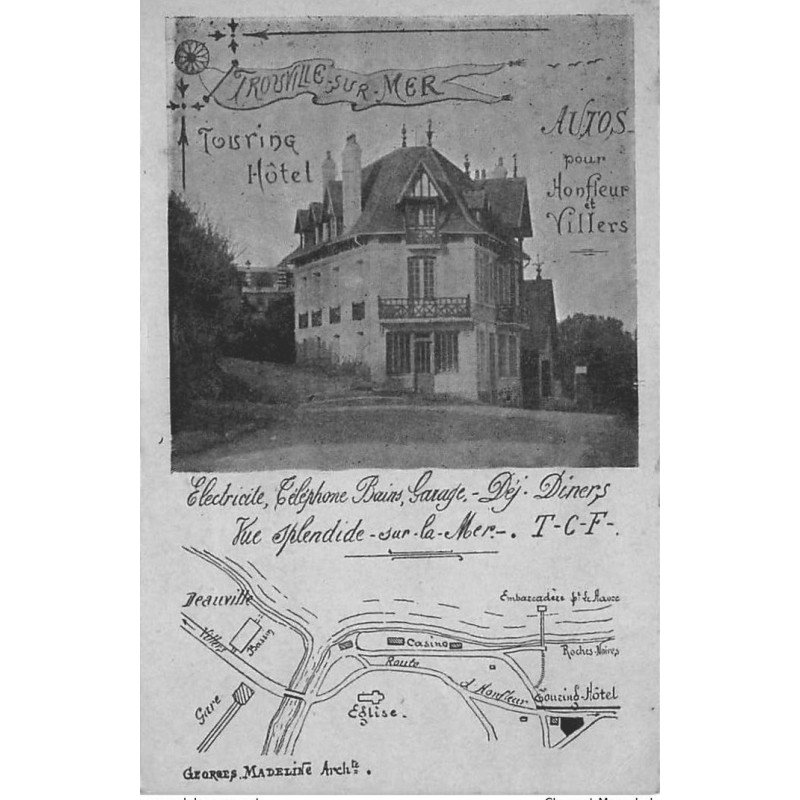 TROUVILLE-SUR-MER
Touring
Hôtel
AUTOS
pour
Honfleur
et
Villers
Electricité, Téléphone Bains, Garage, - Déj - Diners
Vue splendide - sur - la - Mer - . T - C - F - .
Deauville
Villers
Bassin
Gare
Embarcadère pr Le Havre
Casino
Roches-Noires
Route d'Honfleur
Touring-Hôtel
Eglise.
GEORGES MADELINE Archte.